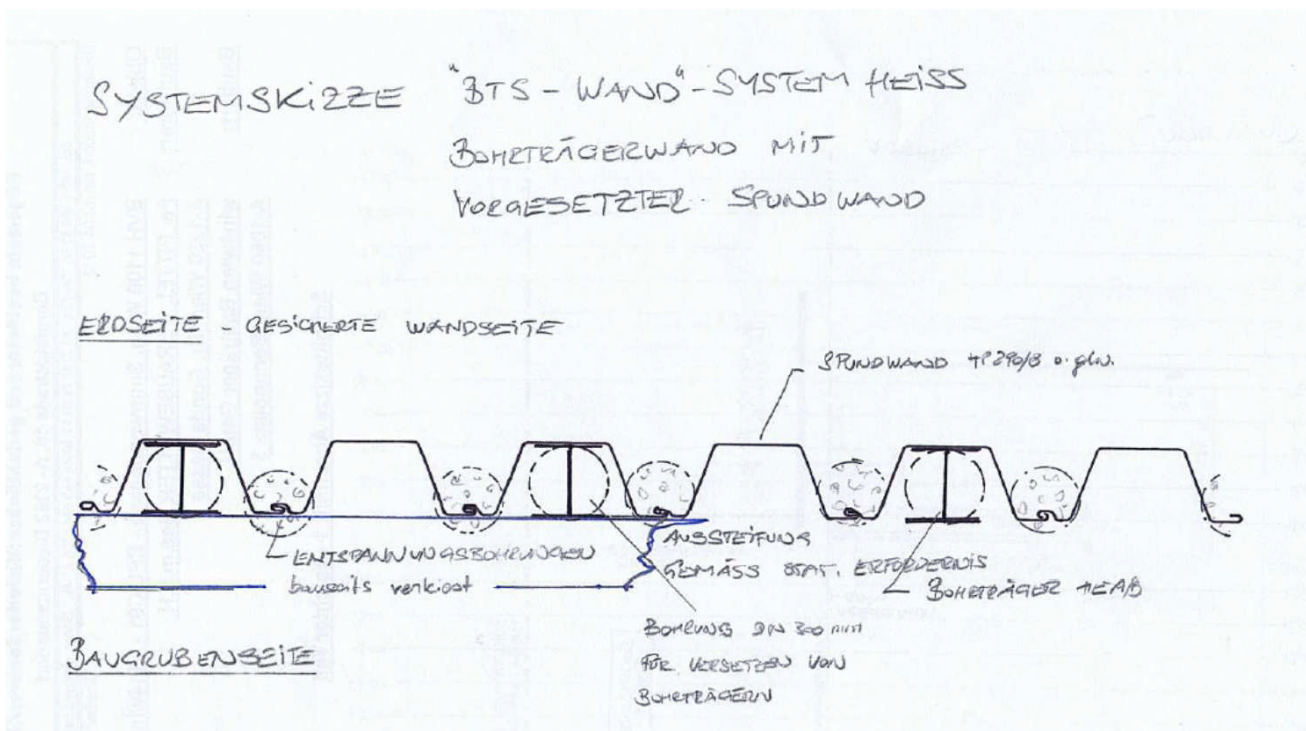 SYSTEMSKIZZE "BTS - WAND" - SYSTEM HEISS
BOHRTRÄGERWAND MIT
VORGESETZTER SPUNDWAND
ERDSEITE GESICHERTE WANDSEITE
SPUNDWAND
ENTSPANNUNGSBOHRUNGEN
bauseits verkiest
AUSSTEIFUNG
GEMÄSS STAT. ERFORDERNIS
BOHRTRÄGER HEAB
BAUGRUBENSEITE
BOHRUNG DN 300 mm
FÜR VERSETZEN VON
BOHRTRÄGERN